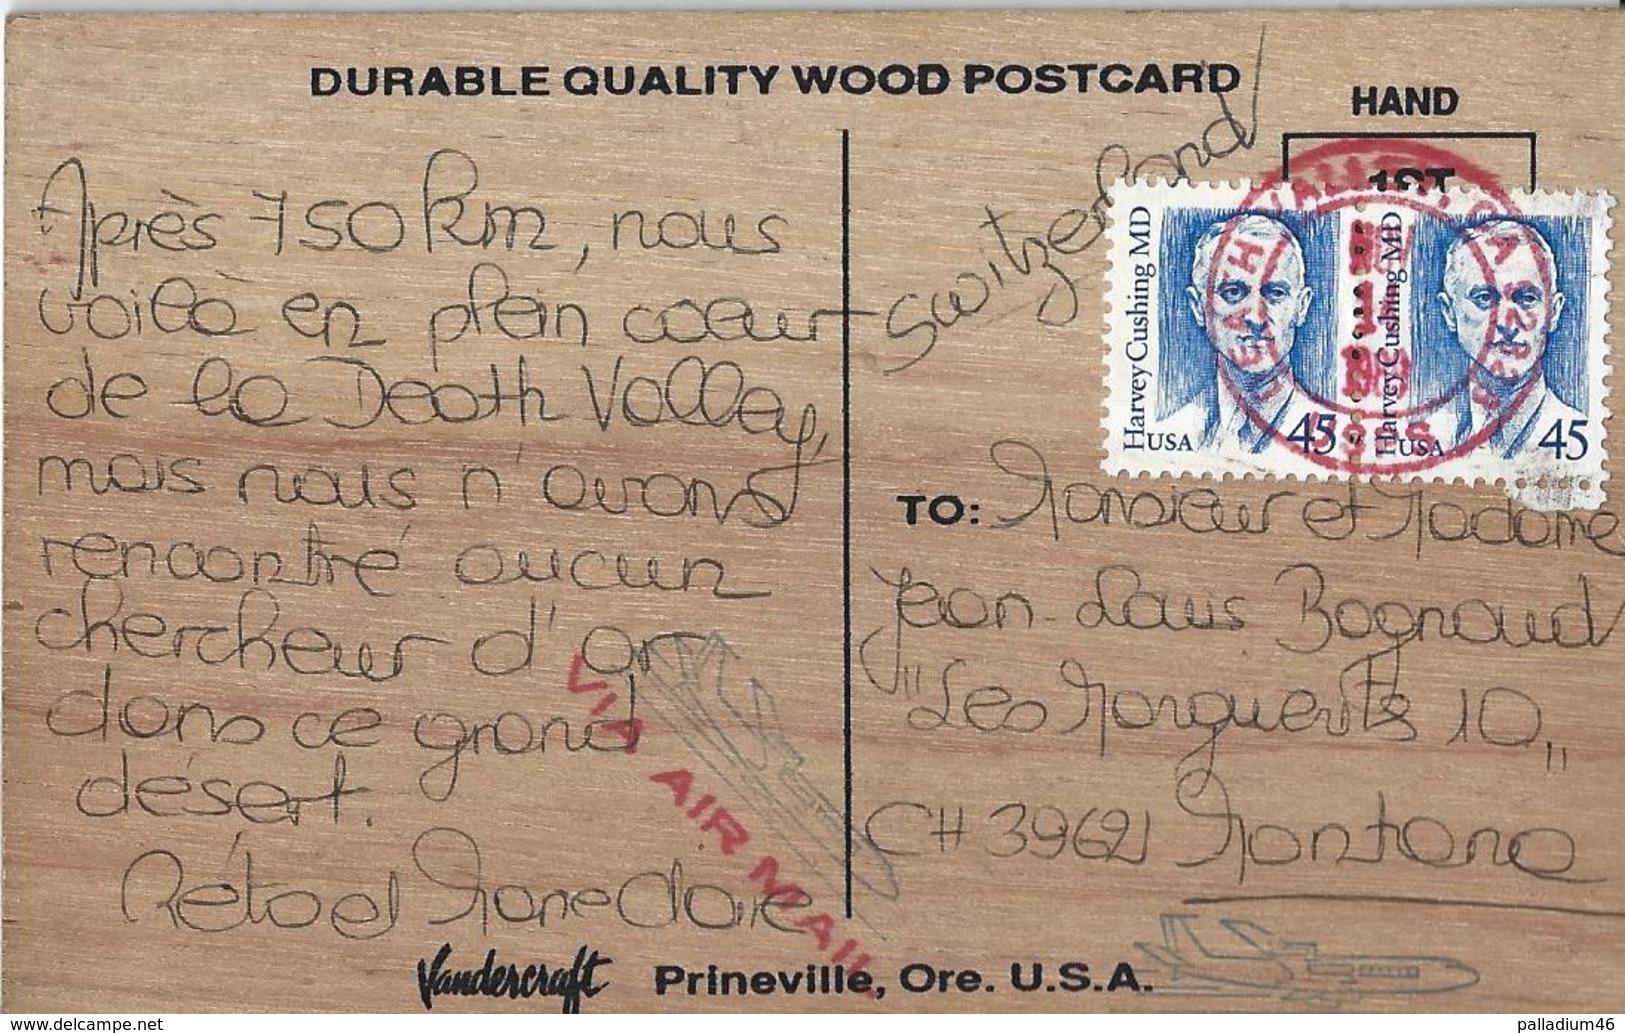 DURABLE QUALITY WOOD POSTCARD
HAND
1ST
Après 750 km, nous
voilà en plein coeur
de la Death Valley,
mais nous n'avons
rencontré aucun
chercheur d'or
dans ce grand
désert.
Switzerland
Harvey Cushing MD
USA 45
Harvey Cushing MD
USA 45
DEATH VALLEY, CA 92328
USPS
TO: Monsieur et Madame
Jean-Louis Bagnoud
"Les Marguerites 10"
CH 3962 Montana
VIA AIR MAIL
Vandercraft Prineville, Ore. U.S.A.
https://www.delcampe.net
palladium46